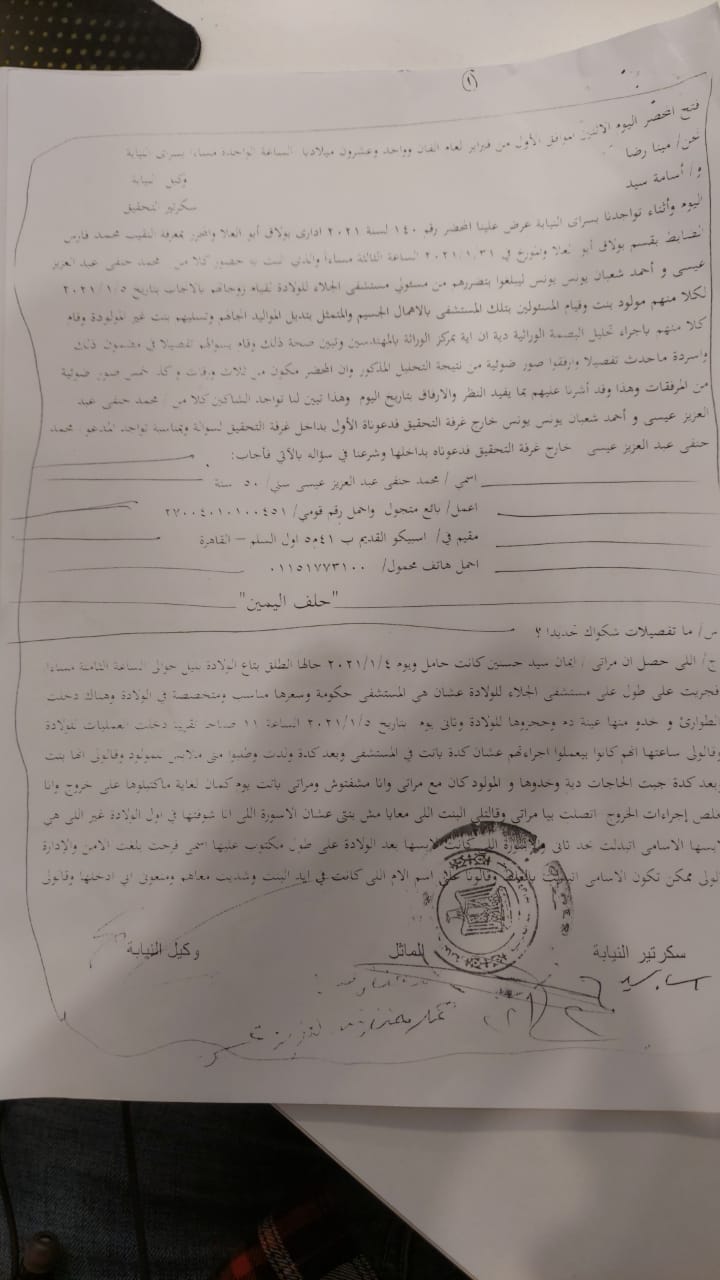 (١)
فتح المحضر اليوم الاثنين الموافق الأول من فبراير لعام الفان وواحد وعشرون ميلاديا الساعة الواحدة مساءا بسراى النيابة
نحن/ مينا رضا وكيل النيابة
و/ أسامة سيد سكرتير التحقيق
اليوم وأثناء تواجدنا بسراى النيابة عرض علينا المحضر رقم ١٤٠ لسنة ٢٠٢١ ادارى بولاق أبو العلا والمحرر بمعرفة النقيب محمد فارس
الضابط بقسم بولاق أبو العلا والمؤرخ في ٢٠٢١/١/٣١ الساعة الثالثة مساءاً والذي اثبت به حضور كلا من محمد حنفى عبد العزيز
عيسى و أحمد شعبان يونس يونس ليبلغوا بتضررهم من مسئولي مستشفى الجلاء للولادة لقيام زوجاتهم بالانجاب بتاريخ ٢٠٢١/١/٥
لكلا منهم مولود بنت وقيام المسئولين بتلك المستشفى بالاهمال الجسيم والمتمثل بتبديل المواليد انجالهم وتسليهم بنت غير المولودة وقام
كلا منهم باجراء تحليل البصمة الوراثية دية ان اية بمركز الوراثة بالمهندسين وتبين صحة ذلك وقام بسوالهم تفصيلا في مضمون ذلك
واسردة ماحدث تفصيلا وارفقوا صور ضوئية من نتيجة التحليل المذكور وان المحضر مكون من ثلاث ورقات وكذا خمس صور ضوئية
من المرفقات وهذا وقد أشرنا عليهم بما يفيد النظر والارفاق بتاريخ اليوم وهذا تبين لنا تواجد الشاكين كلا من / محمد حنفى عبد
العزيز عيسى و أحمد شعبان يونس يونس خارج غرفة التحقيق فدعوناة الأول بداخل غرفة التحقيق لسوالة وبمناسبة تواجد المدعو / محمد
حنفى عبد العزيز عيسى خارج غرفة التحقيق فدعوناه بداخلها وشرعنا في سؤاله بالآتي فأجاب:
اسمي / محمد حنفى عبد العزيز عيسى سني/ ٥٠ سنة
اعمل/ بائع متجول واحمل رقم قومي/ ٢٧٠٠٤٠١٠١٠٠٤٥١
مقيم في/ اسبيكو القديم ب ٤١م٥ اول السلم – القاهرة
احمل هاتف محمول/ ٠١١٥١٧٧٣١٠٠
"حلف اليمين"
س/ ما تفصيلات شكواك تحديدا ؟
ج/ اللى حصل ان مراتى / ايمان سيد حسنين كانت حامل ويوم ٢٠٢١/١/٤ جالها الطلق بتاع الولادة بليل حوالى الساعة الثامنة مساءا
فجريت على طول على مستشفى الجلاء للولادة عشان هي المستشفى حكومة وسعرها مناسب ومتخصصة في الولادة وهناك دخلت
الطوارئ و خدو منها عينة دم وحجزوها للولادة وتانى يوم بتاريخ ٢٠٢١/١/٥ الساعة ١١ صباحا تقريبا دخلت العمليات للولادة
وقالولى ساعتها انهم كانوا بيعملوا اجراءتهم عشان كدة باتت في المستشفى وبعد كدة ولدت وطلبوا منى ملابس للمولود وقالولى انها بنت
وبعد كدة جبت الحاجات دية وخدوها و المولود كان مع مراتى وانا مشفتوش ومراتى باتت يوم كمان لغاية ماكتبلوها على خروج وانا
بخلص إجراءات الخروج اتصلت بيا مراتى وقالتلى البنت اللى معايا مش بنتى عشان الاسورة اللى انا شوفتها في اول الولادة غير اللى هي
لابسها الاسامى اتبدلت خد تانى الاسورة اللى كانت لابسها بعد الولادة على طول مكتوب عليها اسمى فرحت بلغت الامن والإدارة
قالولى ممكن تكون الاسامى اتبدلت بالغلط وقالونا على اسم الام اللى كانت في ايد البنت وشديت معاهم ومنعونى انى ادخلها وقالولى
سكرتير النيابة الماثل وكيل النيابة